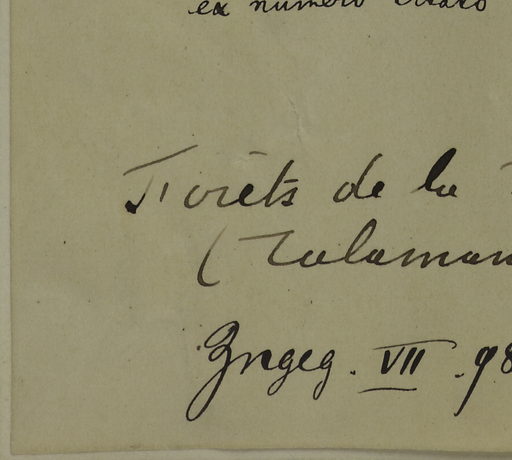 ex numero citato
Forêts de la
(Talaman
legeg. VII. 98